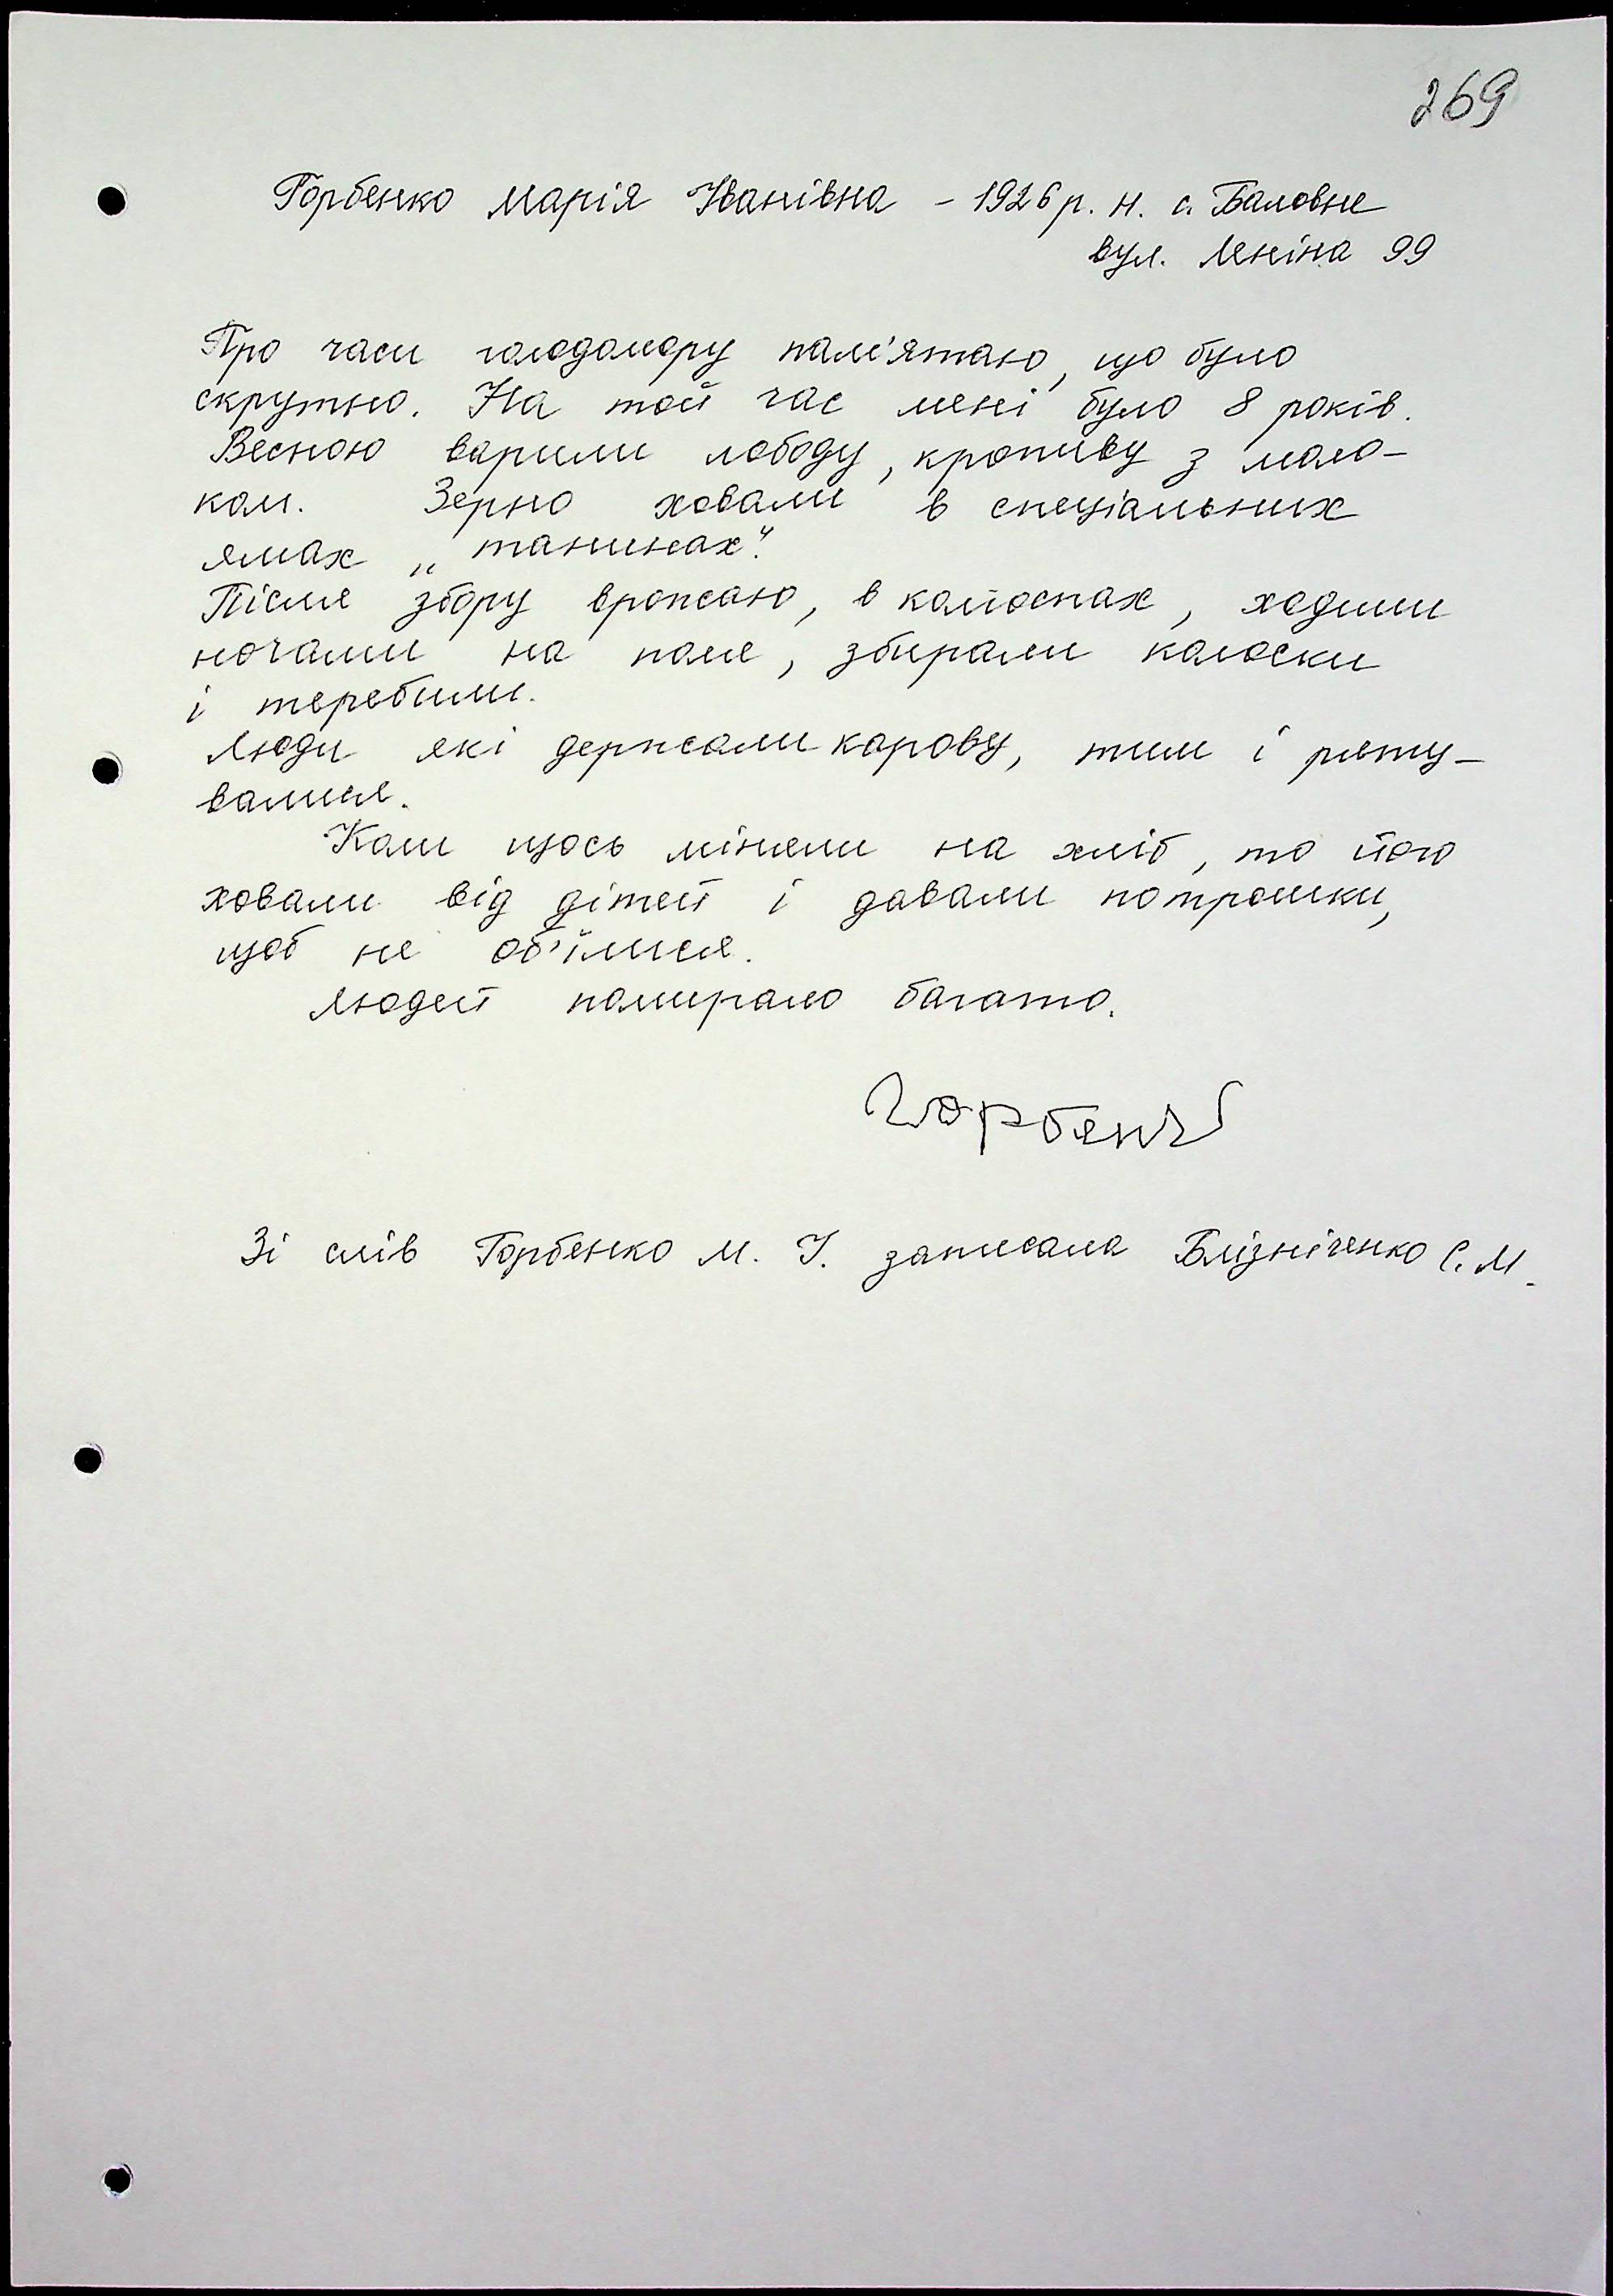 269
Горбенко Марія Іванівна - 1926 р. н. с. Баловне
вул. Леніна 99
Про часи голодомору пам'ятаю, що було
скрутно. На той час мені було 8 років.
Весною варили лободу, кропиву з моло-
ком. Зерно ховали в спеціальних
ямах „танинах".
Після збору врожаю, в колгоспах, ходили
ночами на поле, збирали колоски
і теребили.
Люди які держали корову, тим і ряту-
валися.
Коли щось міняли на хліб, то його
ховали від дітей і давали потрошки,
щоб не об'їлися.
Людей помирало багато.
Горбенко
Зі слів Горбенко М. І. записала Блізніченко С. М.